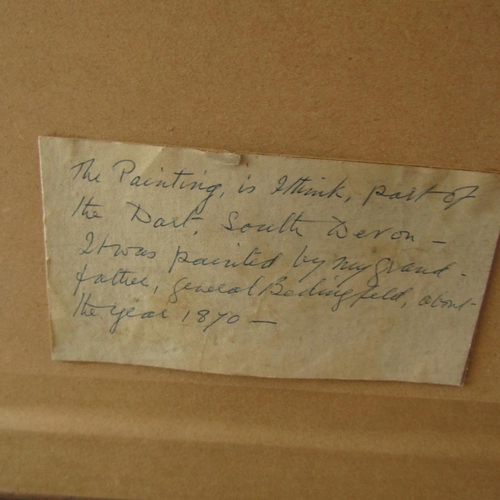 The Painting, is I think, part of
the Dart, South Devon —
It was painted by my grand-
father, general Bedingfeld, about
the year 1870 —